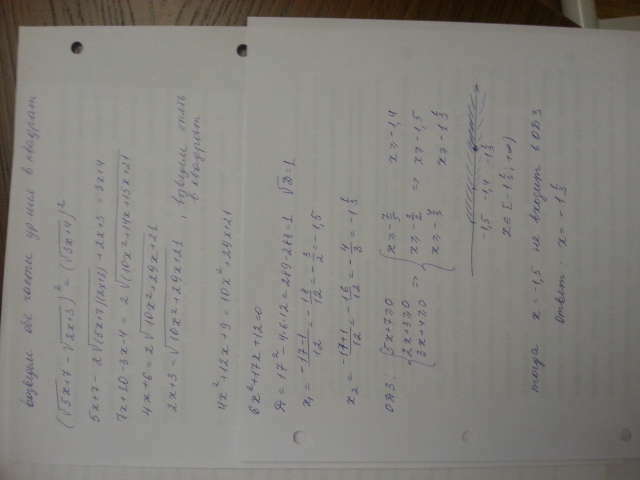 возведем обе части ур-ния в квадрат
(√5x+7 - √2x+3)² = (√3x+4)²
5x+7 - 2√(5x+7)(2x+3) + 2x+3 = 3x+4
7x+10-3x-4 = 2√10x²+14x+15x+21
4x+6 = 2√10x²+29x+21
2x+3 = √10x²+29x+21, возведем опять в квадрат
4x²+12x+9 = 10x²+29x+21
6x²+17x+12=0
D = 17² - 4·6·12 = 289-288=1 √D=1
x₁ = -17-1/12 = -18/12 = -3/2 = -1,5
x₂ = -17+1/12 = -16/12 = -4/3 = -1 1/3
ОДЗ: {5x+7≥0 {x≥-7/5 x≥-1,4
{2x+3≥0 ⇒ {x≥-3/2 ⇒ x≥-1,5
{3x+4≥0 {x≥-4/3 x≥-1 1/3
-1,5 -1,4 -1 1/3
x∈[-1 1/3; +∞)
тогда x=-1,5 не входит в ОДЗ
Ответ: x=-1 1/3